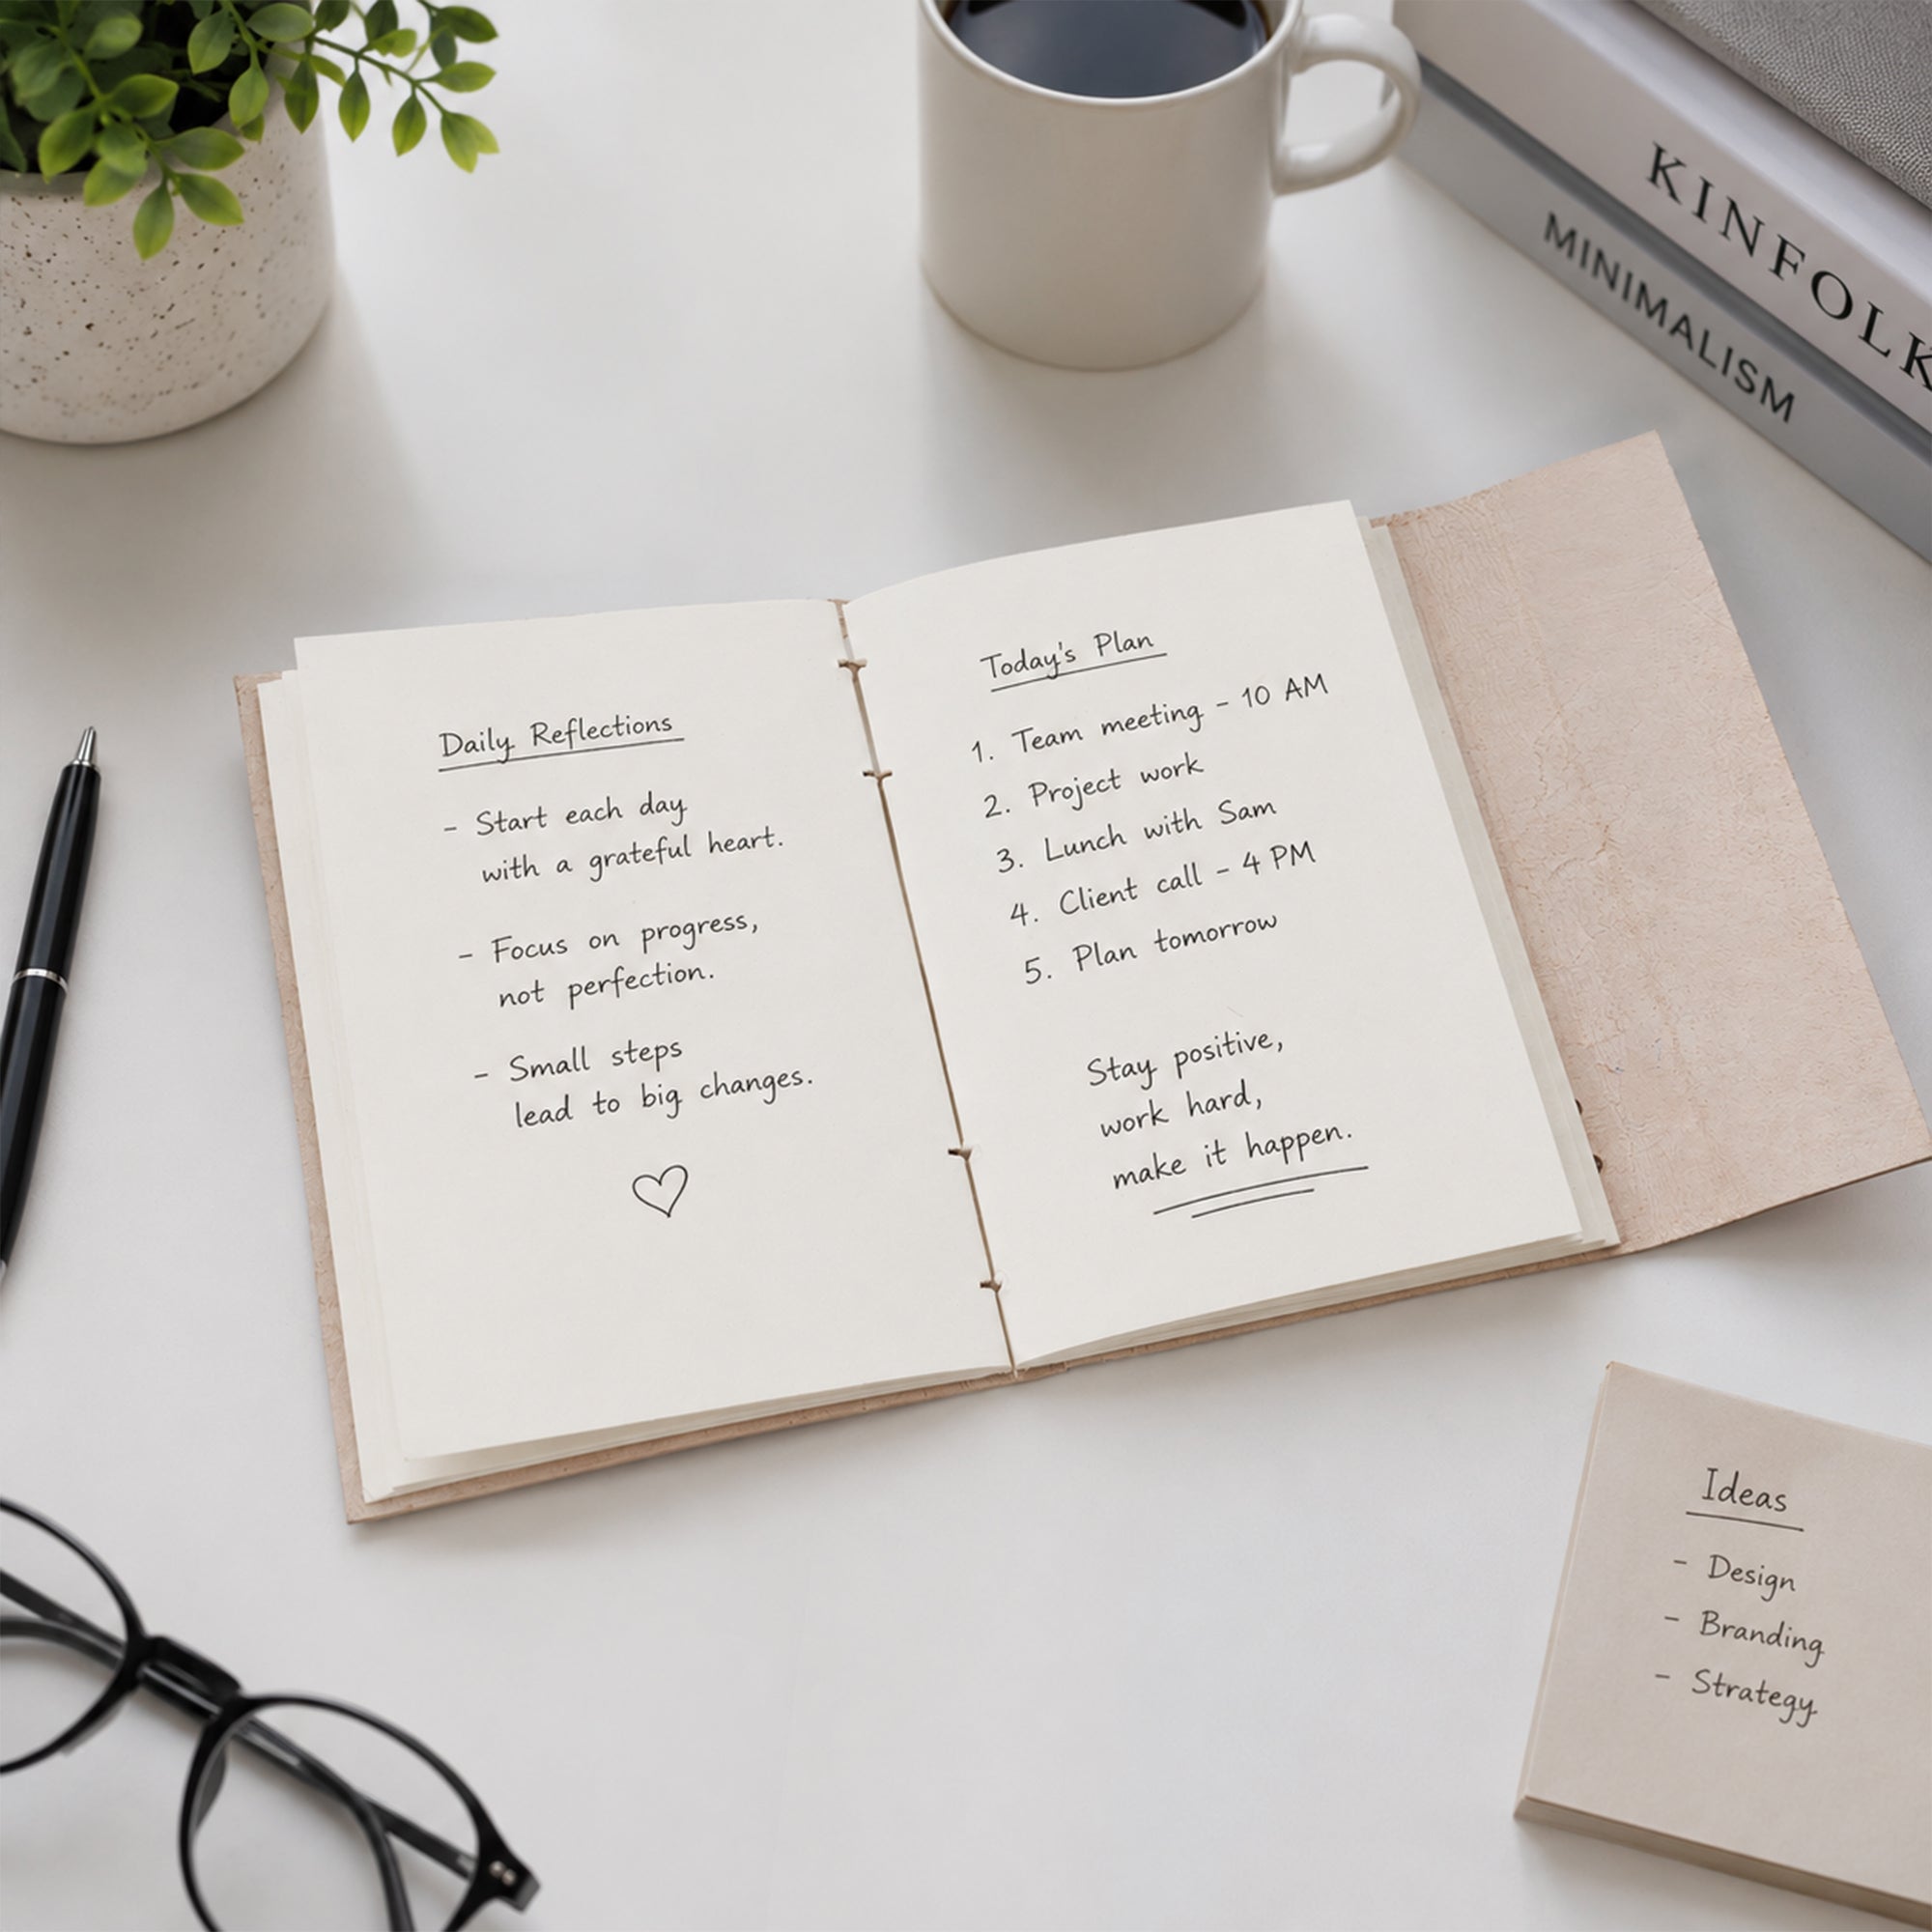 KINFOLK
MINIMALISM
Daily Reflections
- Start each day
with a grateful heart.
- Focus on progress,
not perfection.
- Small steps
lead to big changes.
Today's Plan
1. Team meeting - 10 AM
2. Project work
3. Lunch with Sam
4. Client call - 4 PM
5. Plan tomorrow
Stay positive,
work hard,
make it happen.
Ideas
- Design
- Branding
- Strategy